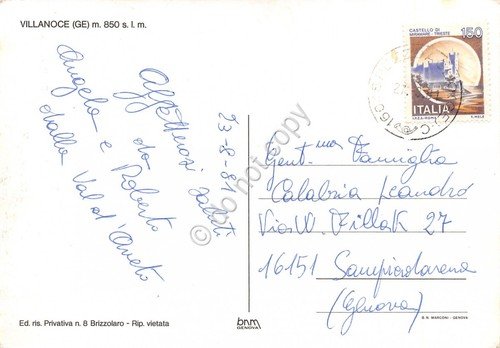 VILLANOCE (GE) m. 850 s. l. m.
CASTELLO DI
MIRAMARE - TRIESTE
150
ITALIA
23-8-81
Affettuosi saluti
da
Angela e Roberto
dalla Val d'Aveto
do not copy
Gent.ma Famiglia
Calabria Leandro
Via W. Fillak 27
16151 Sampierdarena
(Genova)
Ed. ris. Privativa n. 8 Brizzolaro - Rip. vietata
bnm
GENOVA
B. N. MARCONI - GENOVA